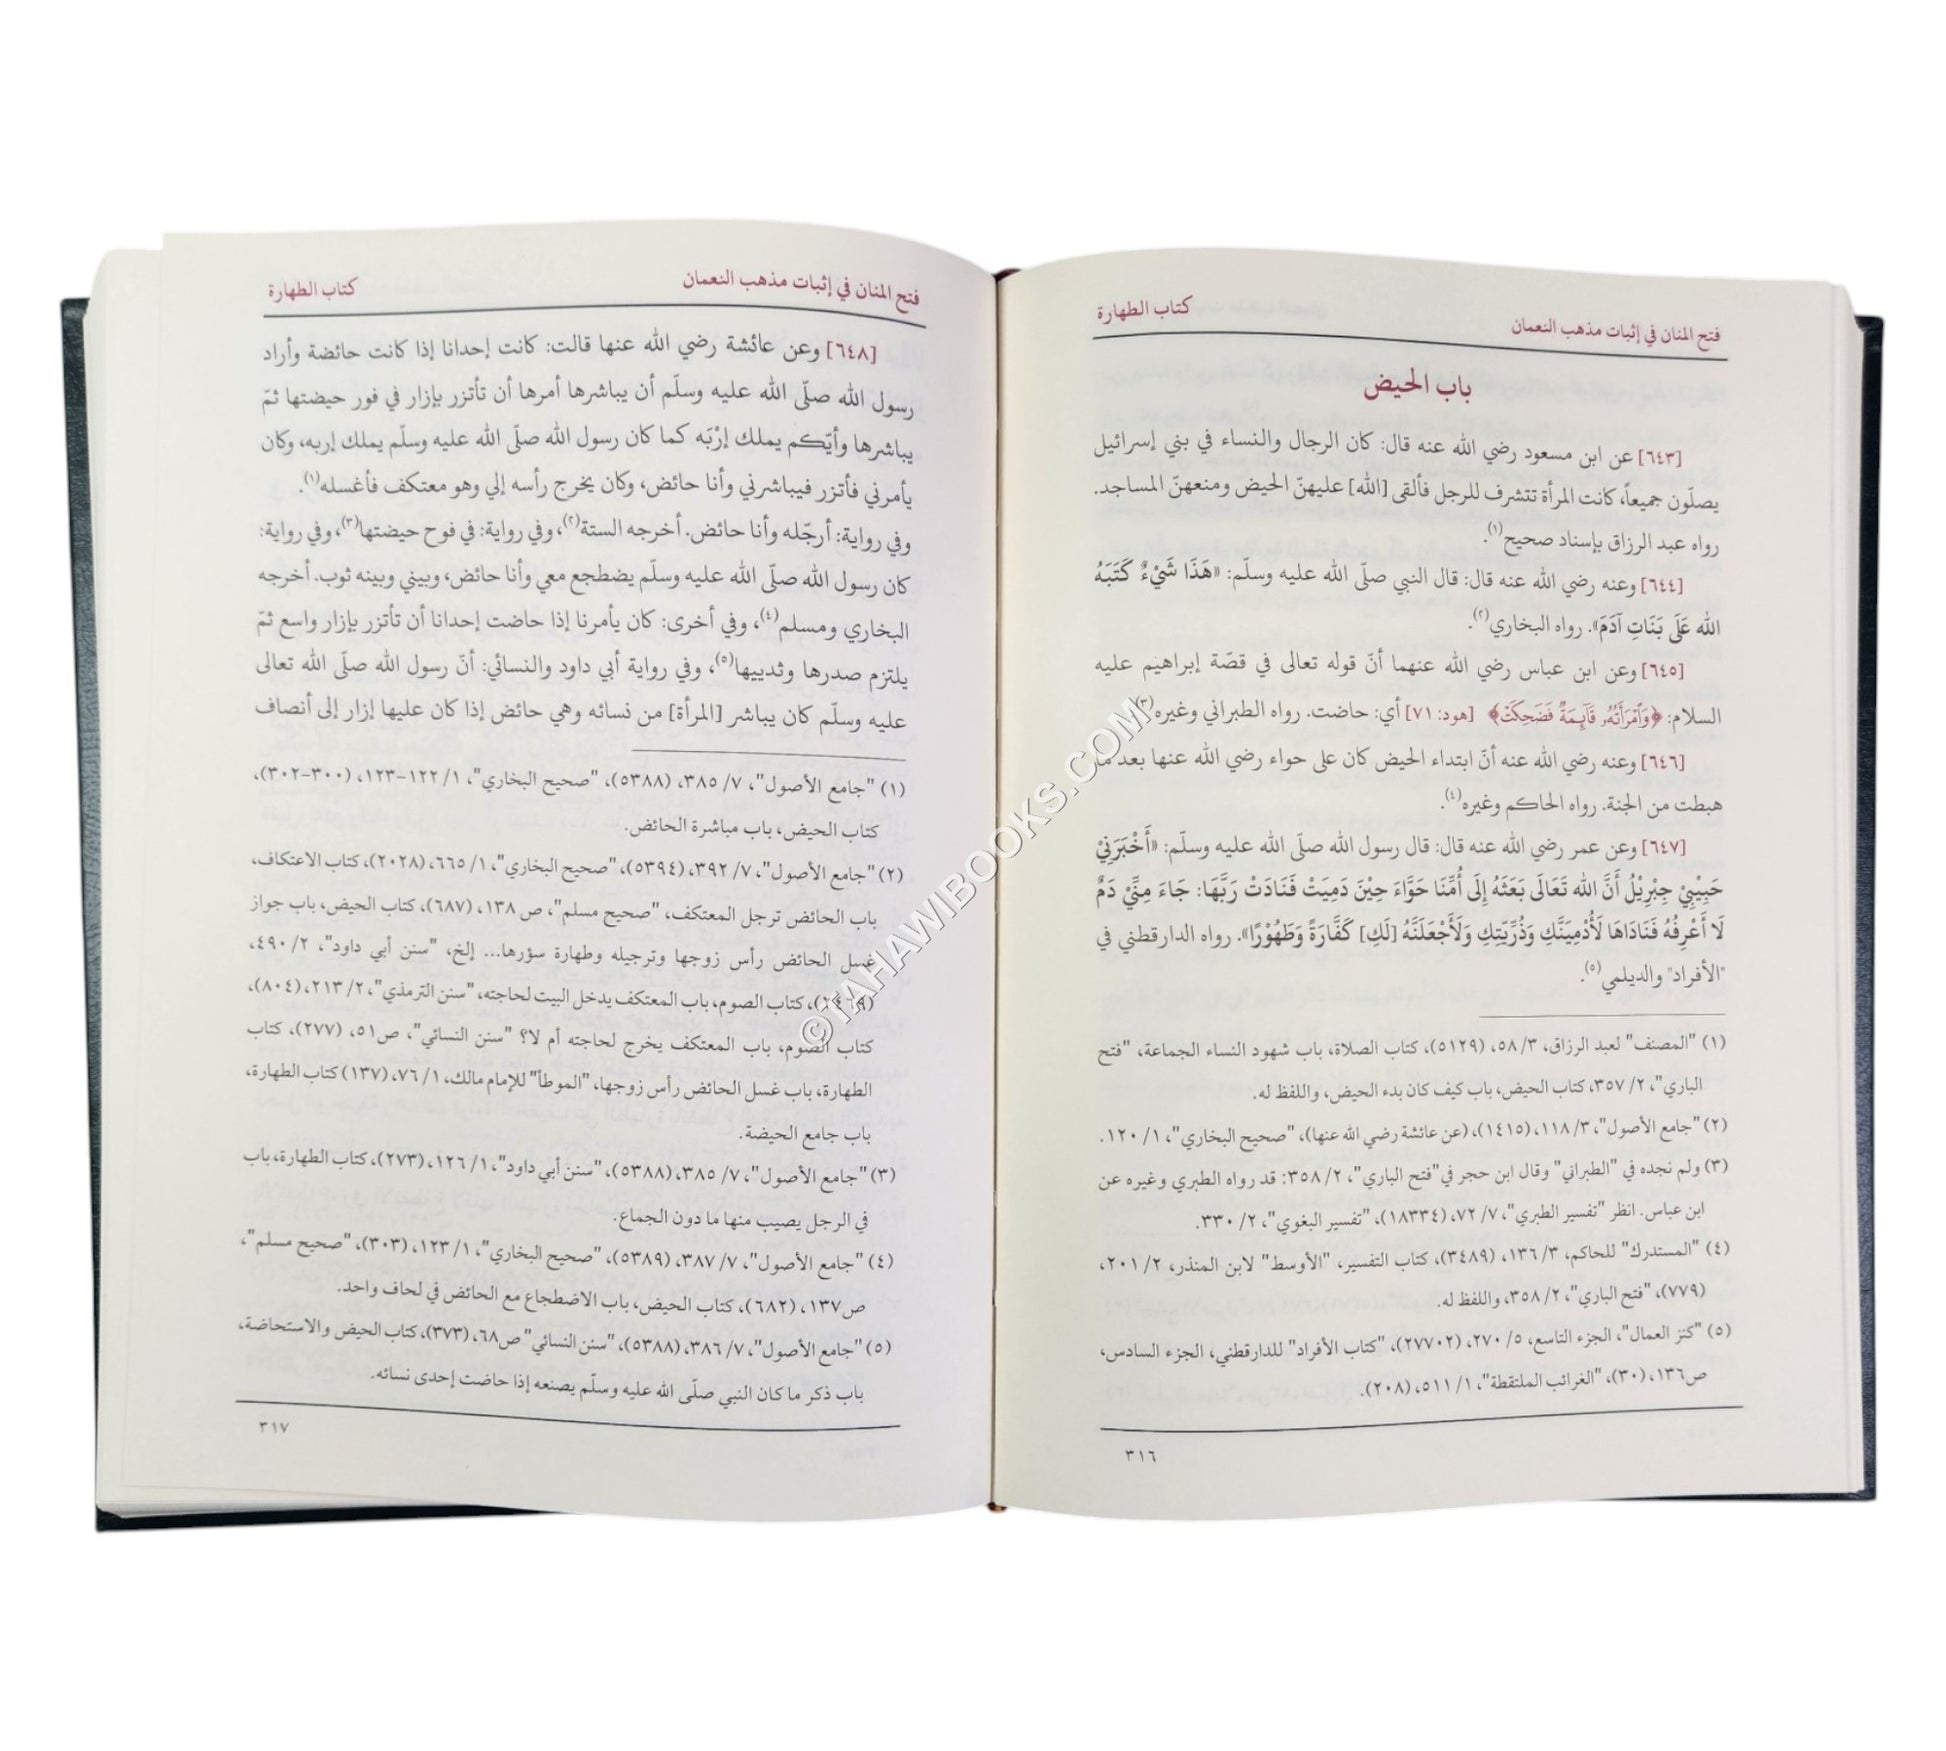 فتح المنان في إثبات مذهب النعمان
كتاب الطهارة
باب الحيض
[٦٤٣] عن ابن مسعود رضي الله عنه قال: كان الرجال والنساء في بني إسرائيل
يصلّون جميعاً، كانت المرأة تتشرف للرجل فألقى [الله] عليهنّ الحيض ومنعهنّ المساجد.
رواه عبد الرزاق بإسناد صحيح(١).
[٦٤٤] وعنه رضي الله عنه قال: قال النبي صلّى الله عليه وسلّم: «هَذَا شَيْءٌ كَتَبَهُ
الله عَلَى بَنَاتِ آدَمَ». رواه البخاري(٢).
[٦٤٥] وعن ابن عباس رضي الله عنهما أنّ قوله تعالى في قصّة إبراهيم عليه
السلام: ﴿وَٱمْرَأَتُهُۥ قَآئِمَةٌ فَضَحِكَتْ﴾ [هود: ٧١] أي: حاضت. رواه الطبراني وغيره(٣).
[٦٤٦] وعنه رضي الله عنه أنّ ابتداء الحيض كان على حواء رضي الله عنها بعد ما
هبطت من الجنة. رواه الحاكم وغيره(٤).
[٦٤٧] وعن عمر رضي الله عنه قال: قال رسول الله صلّى الله عليه وسلّم: «أَخْبَرَنِيْ
حَبِيْبِيْ جِبْرِيْلُ أَنَّ الله تَعَالَى بَعَثَهُ إِلَى أُمِّنَا حَوَّاءَ حِيْنَ دَمِيَتْ فَنَادَتْ رَبَّهَا: جَاءَ مِنِّيْ دَمٌ
لَا أَعْرِفُهُ فَنَادَاهَا لَأُدْمِيَنَّكِ وَذُرِّيَّتِكِ وَلَأَجْعَلَنَّهُ [لَكِ] كَفَّارَةً وَطَهُوْرًا». رواه الدارقطني في
"الأفراد" والديلمي(٥).
(١) "المصنف" لعبد الرزاق، ٣/ ٥٨، (٥١٢٩)، كتاب الصلاة، باب شهود النساء الجماعة، "فتح
الباري"، ٢/ ٣٥٧، كتاب الحيض، باب كيف كان بدء الحيض، واللفظ له.
(٢) "جامع الأصول"، ٣/ ١١٨، (١٤١٥)، (عن عائشة رضي الله عنها)، "صحيح البخاري"، ١/ ١٢٠.
(٣) ولم نجده في "الطبراني" وقال ابن حجر في"فتح الباري"، ٢/ ٣٥٨: قد رواه الطبري وغيره عن
ابن عباس. انظر "تفسير الطبري"، ٧/ ٧٢، (١٨٣٣٤)، "تفسير البغوي"، ٢/ ٣٣٠.
(٤) "المستدرك" للحاكم، ٣/ ١٣٦، (٣٤٨٩)، كتاب التفسير، "الأوسط" لابن المنذر، ٢/ ٢٠١،
(٧٧٩)، "فتح الباري"، ٢/ ٣٥٨، واللفظ له.
(٥) "كنز العمال"، الجزء التاسع، ٥/ ٢٧٠، (٢٧٧٠٢)، "كتاب الأفراد" للدارقطني، الجزء السادس،
ص١٣٦، (٣٠)، "الغرائب الملتقطة"، ١/ ٥١١، (٢٠٨).
٣١٦
فتح المنان في إثبات مذهب النعمان
كتاب الطهارة
[٦٤٨] وعن عائشة رضي الله عنها قالت: كانت إحدانا إذا كانت حائضة وأراد
رسول الله صلّى الله عليه وسلّم أن يباشرها أمرها أن تأتزر بإزار في فور حيضتها ثمّ
يباشرها وأيّكم يملك إرْبَه كما كان رسول الله صلّى الله عليه وسلّم يملك إربه، وكان
يأمرني فأتزر فيباشرني وأنا حائض، وكان يخرج رأسه إلي وهو معتكف فأغسله(١).
وفي رواية: أرجّله وأنا حائض. أخرجه الستة(٢)، وفي رواية: في فوح حيضتها(٣)، وفي رواية:
كان رسول الله صلّى الله عليه وسلّم يضطجع معي وأنا حائض، وبيني وبينه ثوب. أخرجه
البخاري ومسلم(٤)، وفي أخرى: كان يأمرنا إذا حاضت إحدانا أن تأتزر بإزار واسع ثمّ
يلتزم صدرها وثدييها(٥)، وفي رواية أبي داود والنسائي: أنّ رسول الله صلّى الله تعالى
عليه وسلّم كان يباشر [المرأة] من نسائه وهي حائض إذا كان عليها إزار إلى أنصاف
(١) "جامع الأصول"، ٧/ ٣٨٥، (٥٣٨٨)، "صحيح البخاري"، ١/ ١٢٢-١٢٣، (٣٠٠-٣٠٢)،
كتاب الحيض، باب مباشرة الحائض.
(٢) "جامع الأصول"، ٧/ ٣٩٢، (٥٣٩٤)، "صحيح البخاري"، ١/ ٦٦٥، (٢٠٢٨)، كتاب الاعتكاف،
باب الحائض ترجل المعتكف، "صحيح مسلم"، ص ١٣٨، (٦٨٧)، كتاب الحيض، باب جواز
غسل الحائض رأس زوجها وترجيله وطهارة سؤرها... إلخ، "سنن أبي داود"، ٢/ ٤٩٠،
(٢٤٦٩)، كتاب الصوم، باب المعتكف يدخل البيت لحاجته، "سنن الترمذي"، ٢/ ٢١٣، (٨٠٤)،
كتاب الصوم، باب المعتكف يخرج لحاجته أم لا؟ "سنن النسائي"، ص٥١، (٢٧٧)، كتاب
الطهارة، باب غسل الحائض رأس زوجها، "الموطأ" للإمام مالك، ١/ ٧٦، (١٣٧) كتاب الطهارة،
باب جامع الحيضة.
(٣) "جامع الأصول"، ٧/ ٣٨٥، (٥٣٨٨)، "سنن أبي داود"، ١/ ١٢٦، (٢٧٣)، كتاب الطهارة، باب
في الرجل يصيب منها ما دون الجماع.
(٤) "جامع الأصول"، ٧/ ٣٨٧، (٥٣٨٩)، "صحيح البخاري"، ١/ ١٢٣، (٣٠٣)، "صحيح مسلم"،
ص١٣٧، (٦٨٢)، كتاب الحيض، باب الاضطجاع مع الحائض في لحاف واحد.
(٥) "جامع الأصول"، ٧/ ٣٨٦، (٥٣٨٨)، "سنن النسائي" ص٦٨، (٣٧٣)، كتاب الحيض والاستحاضة،
باب ذكر ما كان النبي صلّى الله عليه وسلّم يصنعه إذا حاضت إحدى نسائه.
٣١٧
©TAHAWIBOOKS.COM